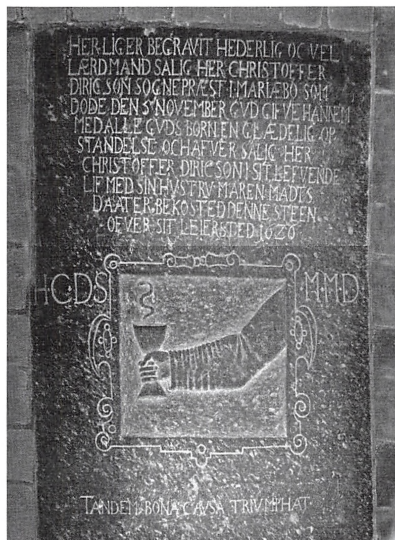 HER LIGER BEGRAVIT HEDERLIG OC VEL
LÆRD MAND SALIG HER CHRISTOFFER
DIRIC SØN SOGNEPRÆST I MARIÆBO SOM
DØDE DEN 5 NOVEMBER GVD GIFVE HANNEM
MED ALLE GVDS BØRN EN GLÆDELIG OP
STANDELSE OC HAFVER SALIG HER
CHRISTOFFER DIRICSØN I SIT LEFVENDE
LIF MED SIN HVSTRV MAREN MADTS
DAATER BEKOSTED DENNE STEEN
OFVER SIT LEIERSTED 1626
HCDS MMD
TANDEM BONA CAVSA TRIVMPHAT